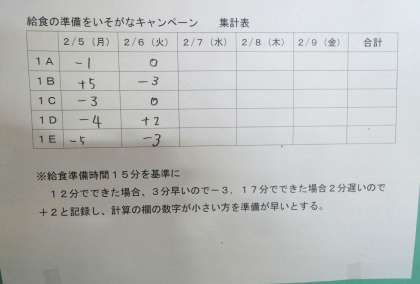 給食の準備をいそがなキャンペーン 集計表
2/5（月） 2/6（火） 2/7（水） 2/8（木） 2/9（金） 合計
1A -1 0
1B +5 -3
1C -3 0
1D -4 +2
1E -5 -3
※給食準備時間15分を基準に
12分でできた場合、3分早いので－3．17分でできた場合2分遅いので
＋2と記録し、計算の欄の数字が小さい方を準備が早いとする。